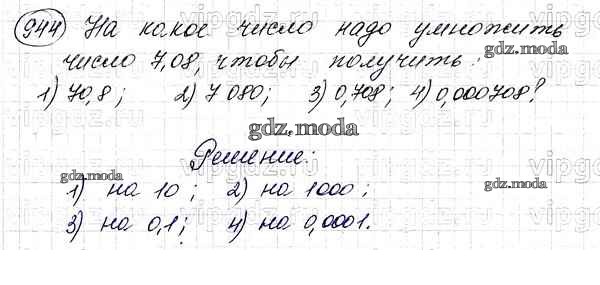 944 На какое число надо умножить
число 7,08, чтобы получить:
1) 70,8; 2) 7 080; 3) 0,708; 4) 0,000708?
Решение:
1) на 10; 2) на 1000;
3) на 0,1; 4) на 0,0001.
gdz.moda
gdz.moda
gdz.moda
gdz.moda